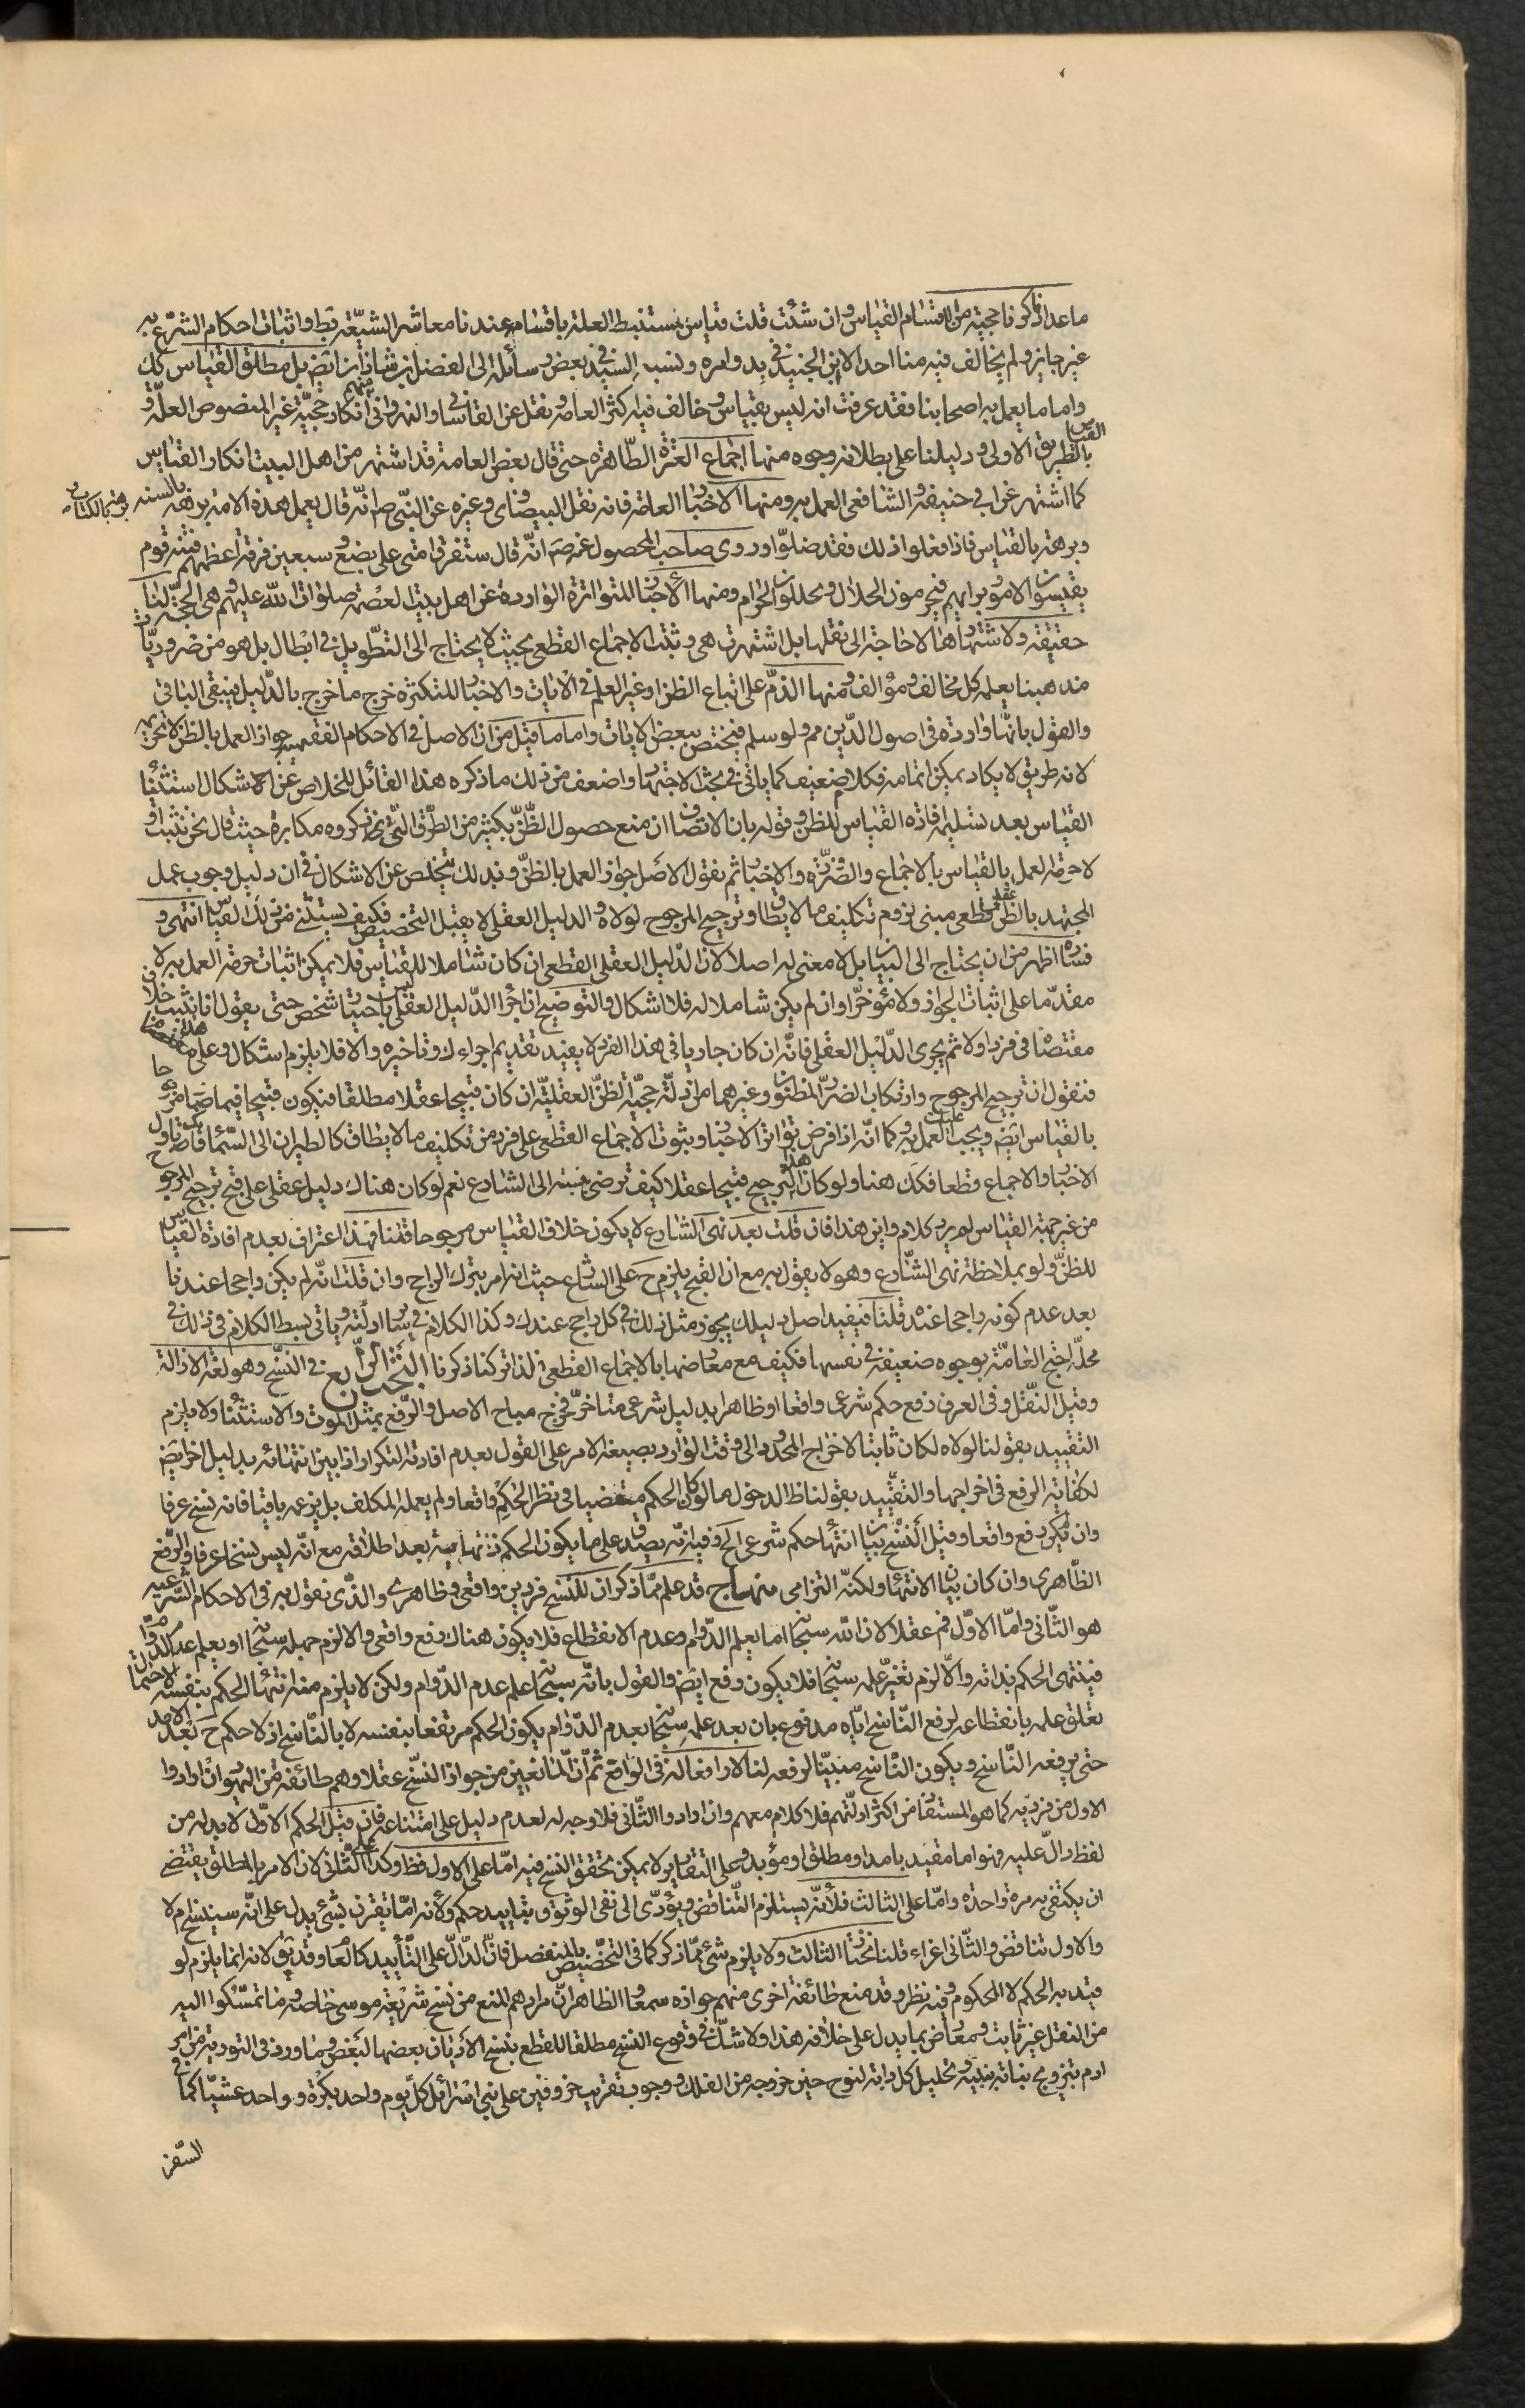 ما عدا ما ذكرنا حجيته من اقسام القياس وان شئت قلت قياس مستنبط العلة باقسامه عندنا معاشر الشيعة بط واثبات احكام الشرع به
غير جايز ولم يخالف فيه منا احد الا ابن الجنيد في بدو امره ونسبه السيد في بعض رسائله الى الفضل بن شاذان ايض بل مطلق القياس كك
واما ما يعمل به اصحابنا فقد عرفت انه ليس بقياس وخالف فيه اكثر العامة ونقل عن القاساني والنهرواني منهم انكار حجية غير المنصوص العلة و
القياس بالطريق الاولى ودليلنا على بطلانه وجوه منها اجماع العترة الطاهرة حتى قال بعض العامة قد اشتهر من اهل البيت انكار القياس
كما اشتهر عن ابي حنيفة والشافعي العمل به ومنها الاخبار العامة فانه نقل البيضاوي وغيره عن النبي ص انه قال يعمل هذه الامة برهة بالكتاب وبرهة بالسنة
وبرهة بالقياس فاذا فعلوا ذلك فقد ضلوا وروى صاحب المحصول عنه ص انه قال ستفرق امتي على بضع وسبعين فرقة اعظمهم فتنة قوم
يقيسون الامور برايهم فيحرمون الحلال ويحللون الحرام ومنها الاخبار المتواترة الواردة عن اهل بيت العصمة صلوات الله عليهم وهي الحجة لنا
حقيقة ولاشتهارها لا حاجة الى نقلها بل اشتهرت هي وثبت الاجماع القطعي بحيث لا يحتاج الى التطويل في ابطاله بل هو من ضروريات
مذهبنا يعلمه كل مخالف ومؤالف ومنها الذم على اتباع الظن او غير العلم في الايات والاخبار المتكثرة خرج ما خرج بالدليل فيبقى الباقي
والقول بانها واردة في اصول الدين مم ولو سلم فيختص ببعض الايات واما ما قيل من ان الاصل في الاحكام الفقهية جواز العمل بالظن لا تحريمه
لانه طريق لا يكاد يمكن اتمامه فكلام ضعيف كما ياتي في بحث الاجتهاد واضعف من ذلك ما ذكره هذا القائل للخلاص عن الاشكال استثناء
القياس بعد تسليمه افادة القياس للظن وقوله بان الانصاف ان منع حصول الظن بكثير من الطرق التي ذكروه مكابرة حيث قال نحن نثبت او
لا حرمة العمل بالقياس بالاجماع والضرورة والاخبار ثم نقول الاصل جواز العمل بالظن وبذلك يتخلص عن الاشكال في ان دليل وجوب عمل
المجتهد بالظن عقلي قطعي مبني لزوم تكليف ما لا يطاق وترجيح المرجوح لولاه والدليل العقلي لا يقبل التخصيص فكيف يستثنى من ذلك القياس انتهى و
فساده اظهر من ان يحتاج الى البيان بل لا معنى له اصلا لان الدليل العقلي القطعي ان كان شاملا للقياس فلا يمكن اثبات حرمة العمل به لا
مقدما على اثبات الجواز ولا مؤخرا وان لم يكن شاملا له فلا اشكال والتوضيح ان اجراء الدليل العقلي ليس باختيار شخص حتى يقول انا نثبت خلاف
مقتضاه في فرد اولا ثم يجرى الدليل العقلي فانه ان كان جاريا في هذا الفرد لا يفيد تقديم اجراءك وتاخيره والا فلا يلزم اشكال وعلى هذا
فنقول ان ترجيح المرجوح وارتكاب الضرر المظنون وغيرهما من ادلة حجية الظن العقلية ان كان قبيحا عقلا مطلقا فيكون قبيحا فيما صار مرجوحا
بالقياس ايض ويجب العمل به وكما انه اذا فرض تواتر الاخبار وثبوت الاجماع القطعي على فرد من تكليف ما لا يطاق كالطيران الى السماء فانك تاول
الاخبار والاجماع قطعا فكك هنا ولو كان هذا الترجيح قبيحا عقلا كيف ترضى بنسبته الى الشارع نعم لو كان هناك دليل عقلي على قبح ترجيح المرجوح
من غير جهة القياس لم يرد كلام واين هذا فان قلت بعد نهى الشارع لا يكون خلاف القياس مرجوحا قلنا فهذا اعتراف بعدم افادة القياس
للظن ولو بملاحظة نهى الشارع وهو لا يقول به مع ان القبح يلزم ح على الشارع حيث انه امر بترك الراجح وان قلت انه لم يكن راجحا عندنا
بعد عدم كونه راجحا عنده قلنا فيفيد اصل دليلك يجوز مثل ذلك في كل راجح عندك وكذا الكلام في ساير ادلته وياتي بسط الكلام في ذلك في
محله احتج العامة بوجوه ضعيفة في نفسها فكيف مع معارضها بالاجماع القطعي فلذا تركنا ذكرنا البحث الرابع في النسخ وهو لغة الازالة
وقيل النقل وفي العرف رفع حكم شرعي واقعا او ظاهرا بدليل شرعي متاخر فخرج مباح الاصل والرفع بمثل الموت والاستثناء ولا يلزم
التقييد بقولنا لولاه لكان ثابتا لاخراج المحدود الى وقت الوارد بصيغة الامر على القول بعدم افادته التكرار اذا بين انتهائه بدليل اخر ايض
لكفاية الرفع في اخراجها والتقييد بقولنا ظ الدخول ما لو كان الحكم منقضيا في نظر الحاكم واقعا ولم يعلمه المكلف بل يزعمه باقيا فانه نسخ عرفا
وان لم يكن رفع واقعا وقيل النسخ بيان انتهاء حكم شرعي الخ وفيه انه يصدق على ما يكون الحكم فيه بعد اطلاقه مع انه ليس نسخا عرفا والرفع
الظاهري وان كان بيان الانتهاء ولكنه التزامي منهاج قد علم مما ذكر ان للنسخ فردين واقعي وظاهري والذي نقول به في الاحكام الشرعية
هو الثاني واما الاول فمم عقلا لان الله سبحانه اما يعلم الدوام وعدم الانقطاع فلا يكون هناك رفع واقعي والا لزم جهله سبحانه او يعلم عدم الدوام
فينتهى الحكم بذاته والا لزم تغير علمه سبحانه فلا يكون رفع ايض والقول بانه سبحانه علم عدم الدوام ولكن لا يلزم منه انتهاء الحكم بنفسه لاحتمال
تعلق علمه بانقطاعه لرفع الناسخ اياه مدفوع بان بعد علمه سبحانه بعدم الدوام يكون الحكم مرتفعا بنفسه لا بالناسخ اذ لا حكم ح بعد الامد
حتى يرفعه الناسخ ويكون الناسخ مبينا لرفعه لنا لا رافعا له في الواقع ثم ان المانعين من جواز النسخ عقلا وهم طائفة من اليهود ان ارادوا
الاول من فرديه كما هو المستفاد من اكثر ادلتهم فلا كلام معهم وان ارادوا الثاني فلا وجه له لعدم دليل على امتناعه فان قيل الحكم الاول لا بد له من
لفظ دال عليه فهو اما مقيد بامد او مطلق او مؤبد وعلى التقادير لا يمكن تحقق النسخ فيه اما على الاول فظ وكذا على الثاني لان الامر بالمطلق يقتضي
ان يكتفى به مرة واحدة واما على الثالث فلانه يستلزم التناقض ويؤدى الى نفى الوثوق بتاييد حكم ولانه اما يقترن بشئ يدل على انه سينسخ ام لا
والاول تناقض والثاني اغراء قلنا نختار الثالث ولا يلزم شئ مما ذكر كما في التخصيص بالمنفصل فان الدال على التأبيد كالعام وقد يق لانه انما يلزم لو
قيد به الحكم لا المحكوم وفيه نظر وقد منع طائفة اخرى منهم جوازه سمعا والظاهر ان مرادهم المنع من نسخ شريعة موسى خاصة وما تمسكوا اليه
من النقل غير ثابت ومعارض بما يدل على خلافه هذا ولا شك في وقوع النسخ مطلقا للقطع بنسخ الاديان بعضها لبعض وما ورد في التورية من امر
ادم بتزويج بناته بنيه وتحليل كل دابة لنوح حين خروجه من الفلك ووجوب تقريب خروفين على بني اسرائيل كل يوم واحد بكرة وواحد عشيا كما في
السفر